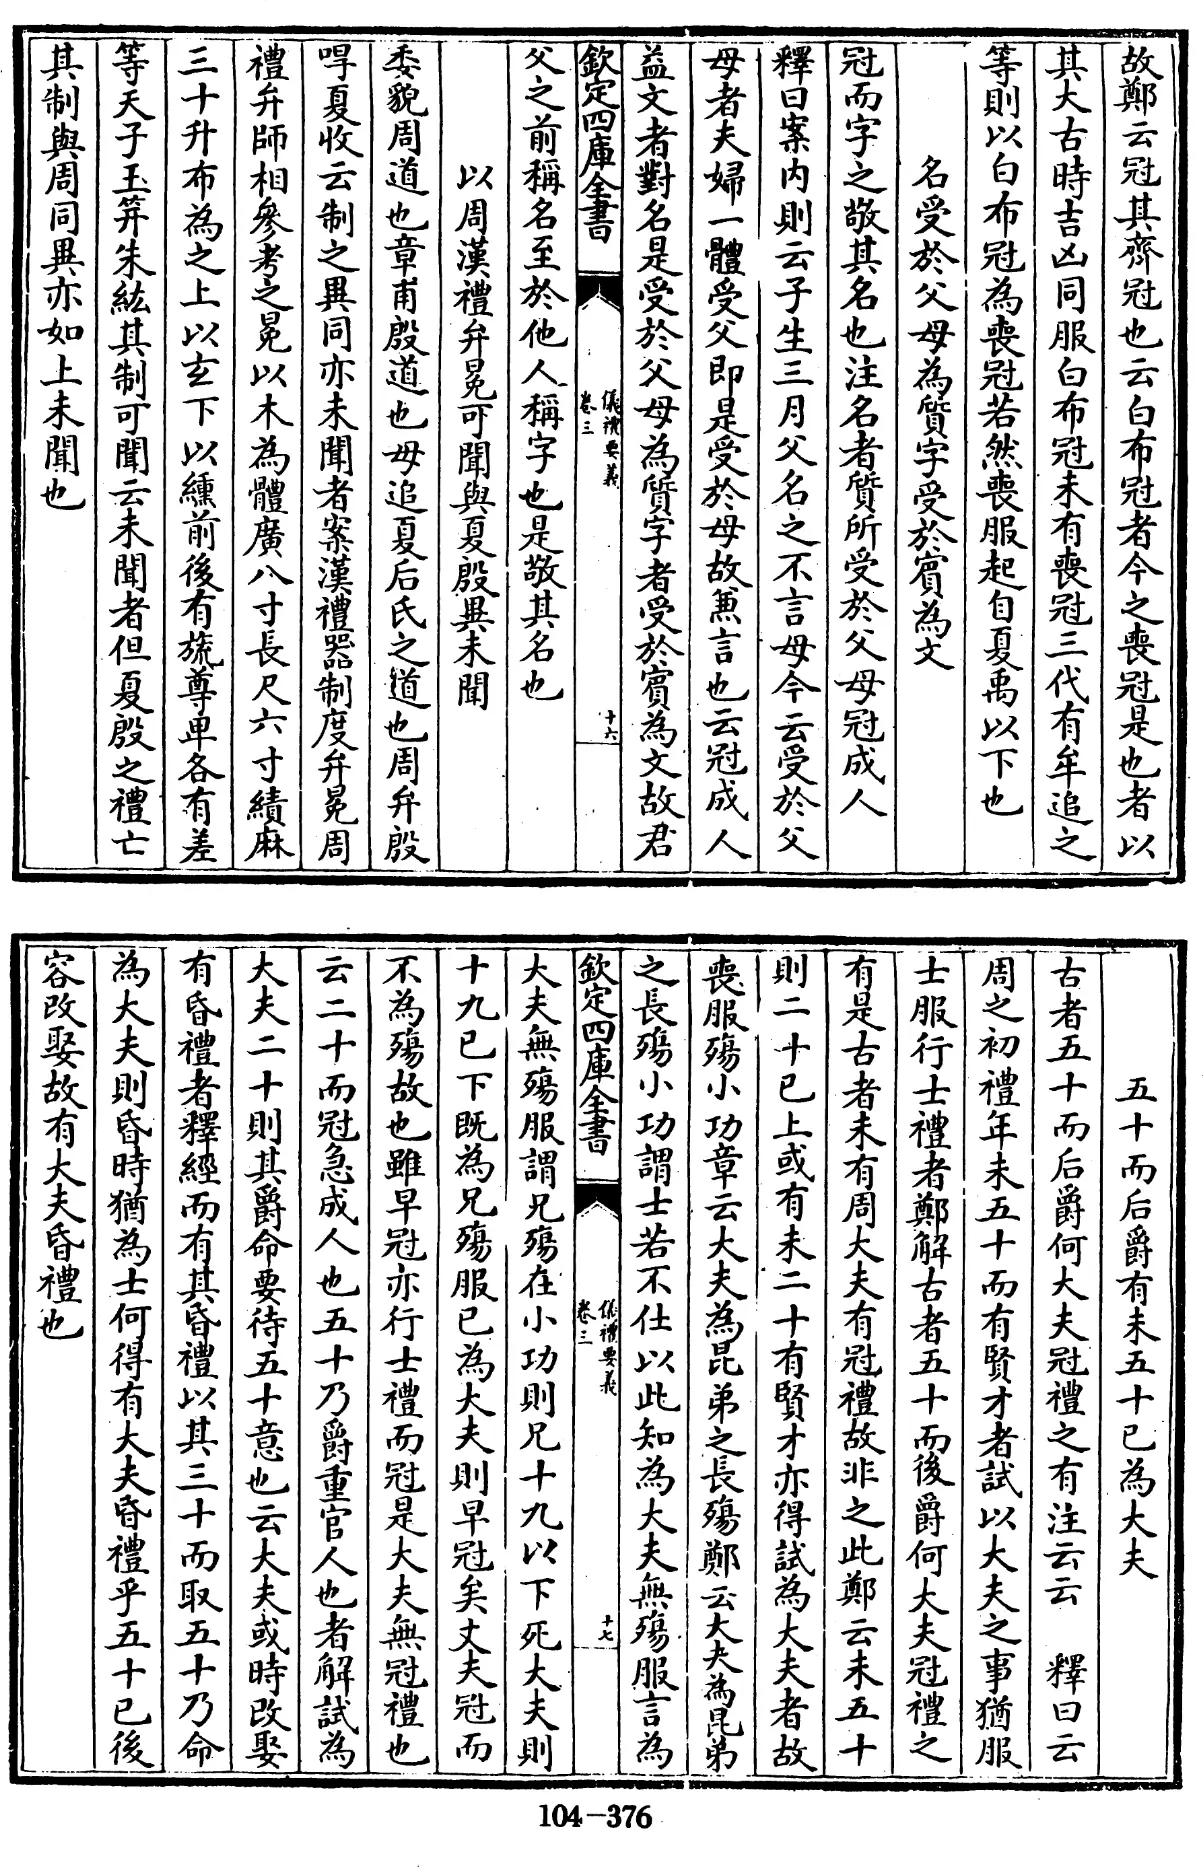 故鄭云冠其齊冠也云白布冠者今之喪冠是也者以
其大古時吉凶同服白布冠未有喪冠三代有牟追之
等則以白布冠為喪冠若然喪服起自夏禹以下也
名受於父母為質字受於賓為文
冠而字之敬其名也注名者質所受於父母冠成人
釋曰案内則云子生三月父名之不言母今云受於父
母者夫婦一體受父即是受於母故兼言也云冠成人
益文者對名是受於父母為質字者受於賓為文故君
欽定四庫全書
儀禮要義
卷三
十六
父之前稱名至於他人稱字也是敬其名也
以周漢禮弁冕可聞與夏殷異未聞
委貌周道也章甫殷道也毋追夏后氏之道也周弁殷
哻夏收云制之異同亦未聞者案漢禮器制度弁冕周
禮弁師相參考之冕以木為體廣八寸長尺六寸績麻
三十升布為之上以玄下以纁前後有旒尊卑各有差
等天子玉笄朱紘其制可聞云未聞者但夏殷之禮亡
其制與周同異亦如上未聞也
五十而后爵有未五十已為大夫
古者五十而后爵何大夫冠禮之有注云云 釋曰云
周之初禮年未五十而有賢才者試以大夫之事猶服
士服行士禮者鄭解古者五十而後爵何大夫冠禮之
有是古者未有周大夫有冠禮故非之此鄭云未五十
則二十已上或有未二十有賢才亦得試為大夫者故
喪服殤小功章云大夫為昆弟之長殤鄭云大夫為昆弟
之長殤小功謂士若不仕以此知為大夫無殤服言為
欽定四庫全書
儀禮要義
卷三
十七
大夫無殤服謂兄殤在小功則兄十九以下死大夫則
十九已下既為兄殤服已為大夫則早冠矣丈夫冠而
不為殤故也雖早冠亦行士禮而冠是大夫無冠禮也
云二十而冠急成人也五十乃爵重官人也者解試為
大夫二十則其爵命要待五十意也云大夫或時改娶
有昏禮者釋經而有其昏禮以其三十而取五十乃命
為大夫則昏時猶為士何得有大夫昏禮乎五十已後
容改娶故有大夫昏禮也
104-376